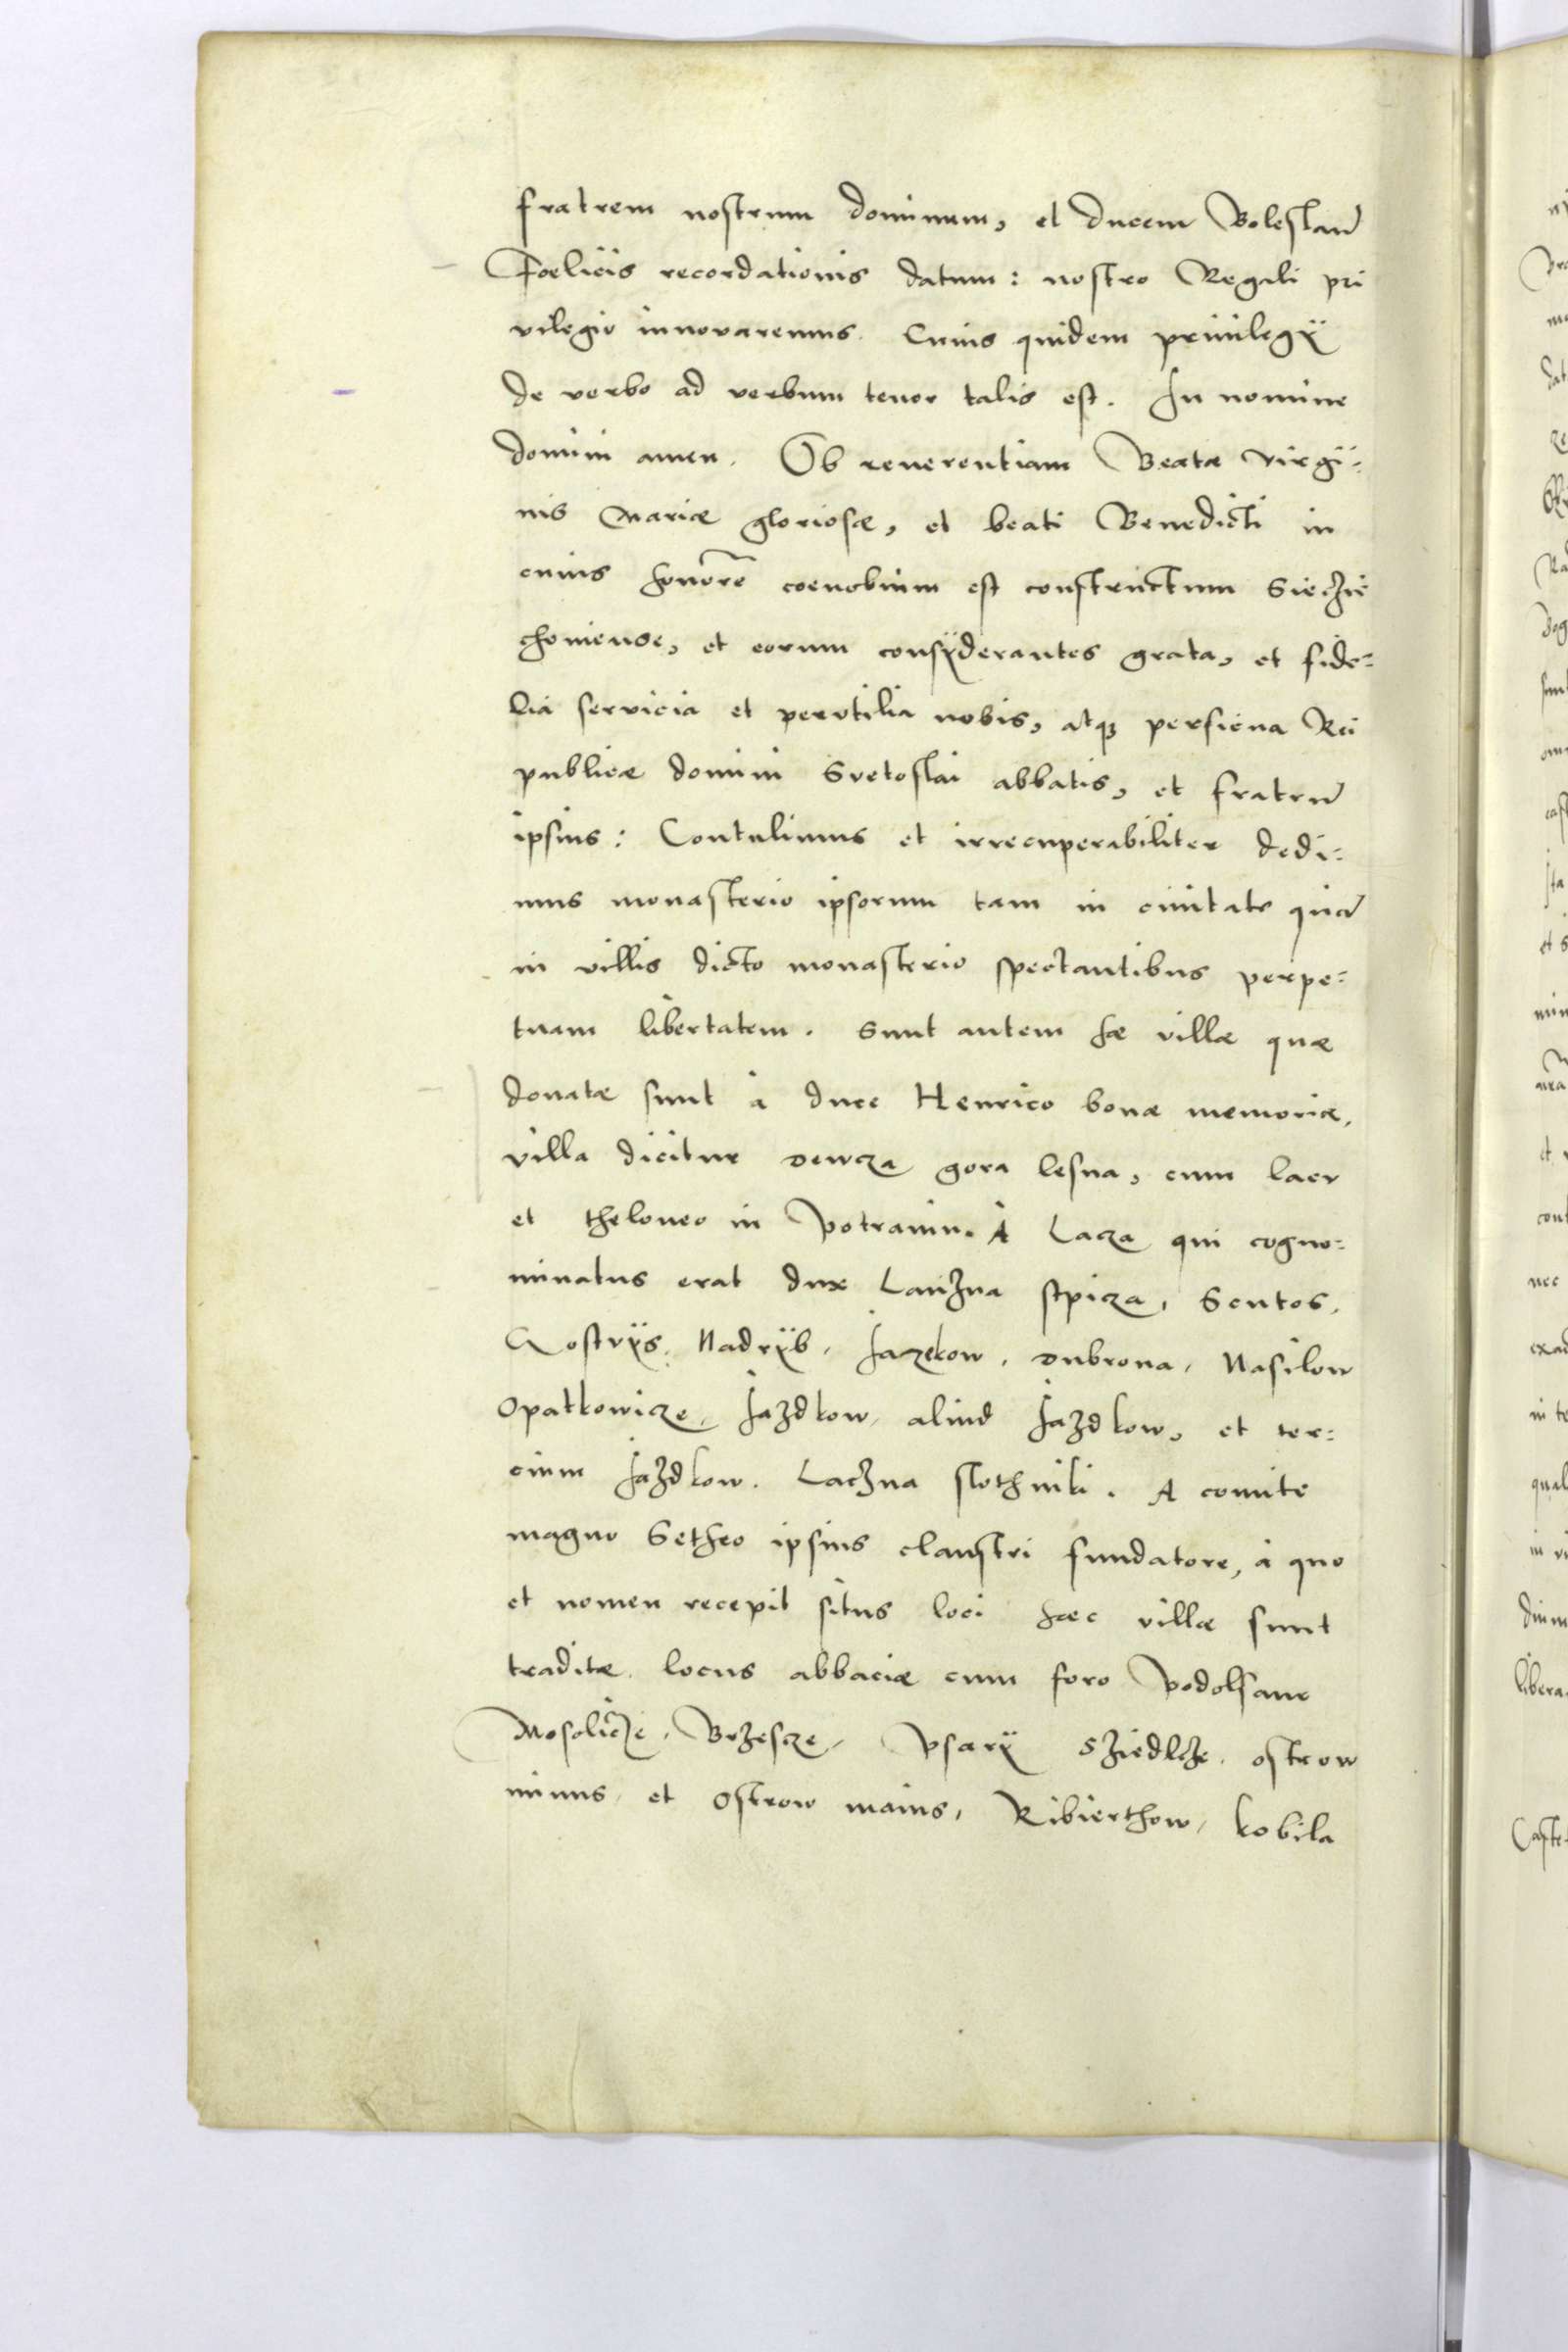 fratrem nostrum dominum, et ducem Boleslaũ
Fœlicis recordationis datum: nostro Regali pri
vilegio innovaremus. Cuius quidem privilegÿ
de verbo ad verbum tenor talis est. In nomine
domini amen. Ob reverentiam Beatæ virgi-
nis Mariæ gloriosæ, et beati Benedicti in
cuius honorẽ coenobium est constructum Siecie
choviense, et eorum consÿderantes grata, et fide-
lia servicia et perutilia nobis, atqȝ persicua Rei
publicæ domini Svetoslai abbatis, et fratrũ
ipsius: Contulimus et irrecuperabiliter dedi-
mus monasterio ipsorum tam in civitate quã
in villis dicto monasterio spectantibus perpe-
tuam libertatem. Sunt autem hæ villæ quæ
donatæ sunt à duce Henrico bonæ memoriæ,
villa dicitur Dewcza gora lesna, cum lacu
et theloneo in Potraniu. A Lacza qui cogno-
minatus erat dux Lanizna stpicza, Sentos,
Nadrÿb, Jazekow, Dubrova, Nasilow
Opatkowicze, Jazdkow, aliud Jazdkow, et ter-
cium Jazdkow. Laczna slothniki. A comite
magno Setheo ipsius claustri fundatore, à quo
et nomen recepit situs loci hæc villæ sunt
traditæ. locus abbaciæ cum foro Podolsane
Mosolicze, Brzescze, Psarÿ Sziedlcze, ostrow
minus, et Ostrow maius, Ribierthow, kobila